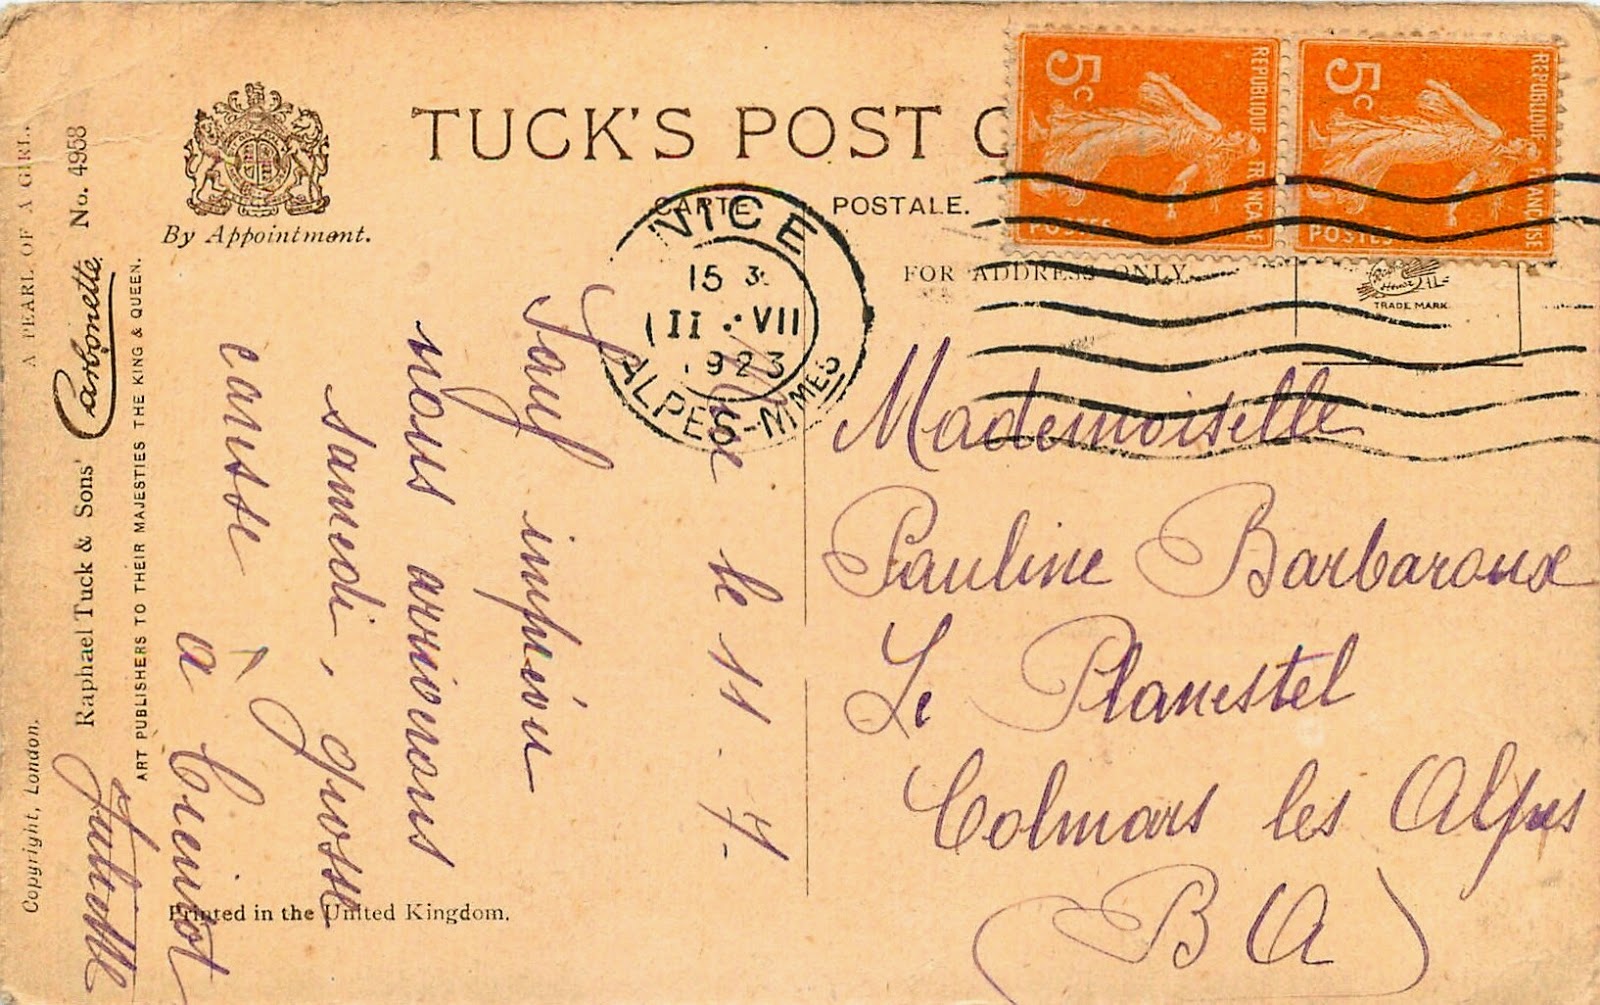 TUCK'S POST C
CARTE POSTALE.
FOR ADDRESS ONLY.
By Appointment.
5c
REPUBLIQUE FRANÇAISE
POSTES
5c
REPUBLIQUE FRANÇAISE
POSTES
NICE
15 3
11 • VII
1923
ALPES-MMES
TRADE MARK
A PEARL OF A GIRL.
Copyright, London.
Raphael Tuck & Sons' Carbonette No. 4958
ART PUBLISHERS TO THEIR MAJESTIES THE KING & QUEEN.
Printed in the United Kingdom.
le 11. 7.
Sauf imprévu
nous arriverons
samedi, grosse
causse
à bientôt
Juliette
Mademoiselle
Pauline Barbaroux
Le Planestel
Colmars les Alpes
(B A)